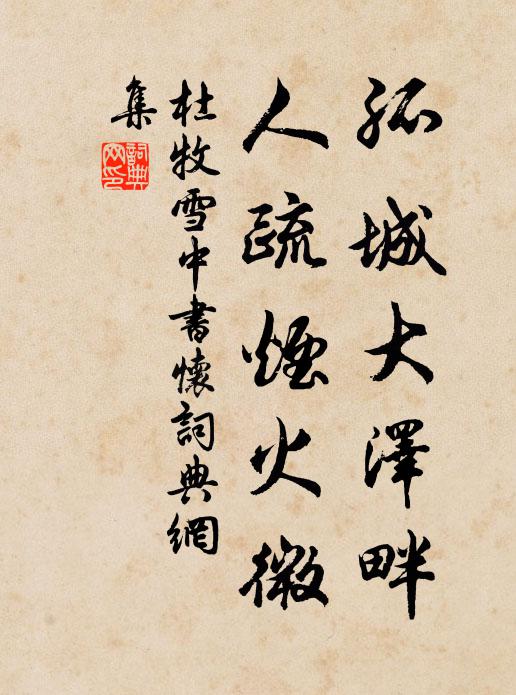 孤城大澤畔
人疏煙火微
杜牧雪中書懷詞典網
集
詞典
网印